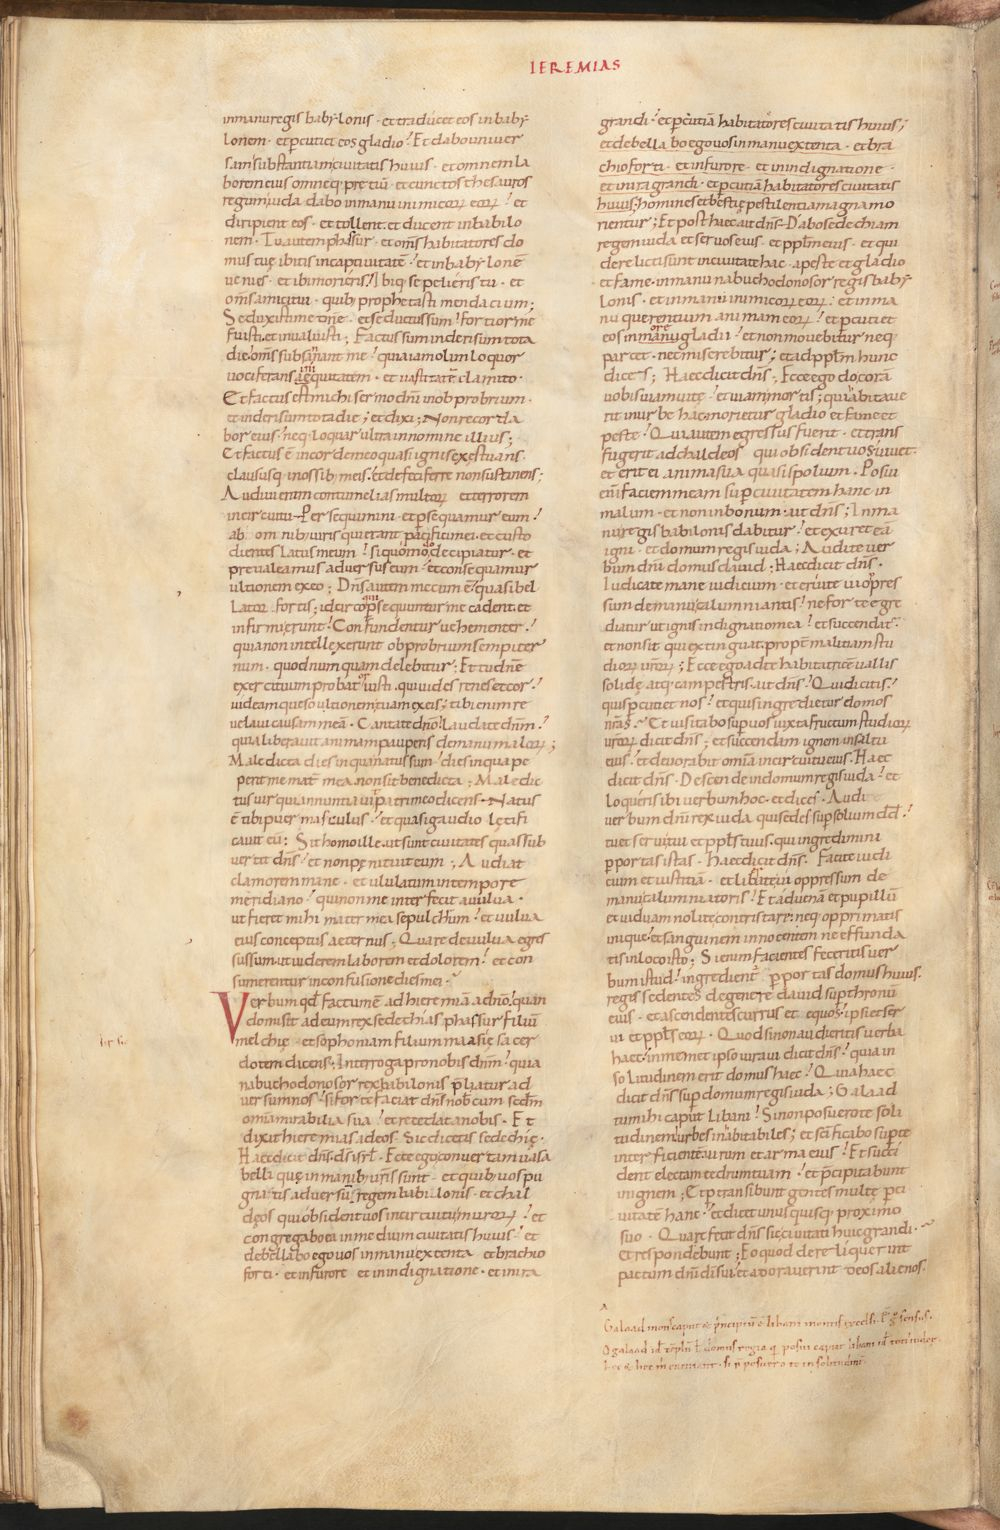 IEREMIAS
inmanu regis babylonis · et traducet eos in baby
lonem · et percutiet eos gladio ! Et dabo univer
sam substantiam civitatis huius · et omnem la
borem eius omneq; pretiũ · et cunctos thesauros
regum iuda dabo inmanu inimicoꝝ eoꝝ ! et
diripient eos · et tollent · et ducent inbabilo
nem · Tu autem phassur · et oms̃ habitatores do
mus tuę ibitis incaptivitatẽ ! et inbabylonẽ
venies · et ibi morieris ! Ibiq; sepelieris tu · et
oms̃ amici tui · quib; prophetasti mendacium ;
Seduxisti me dñe · et seductus sum ! fortior me
fuisti · et invaluisti ; Factus sum inderisum tota
die · oms̃ subsannant me ! quia iam olim loquor
vociferans iniquitatem · et vastitatẽ clamito ·
Et factus est michi sermo dñi inobprobrium ·
et inderisum tota die ; et dixi · Non recorda
bor eius · neq; loquar ultra innomine illius ;
Et factus ẽ incorde meo quasi ignis exęstuans ·
claususq; inossib; meis · et defeci ferre non sustinens ;
Audivi enim contumelias multoꝝ et terrorem
incircuitu · Persequimini · et persequamur eum !
ab omnib; viris qui erant pacifici mei · et custo
dientes latus meum ! si quomodo decipiatur · et
prevaleamus adversus eum · et consequamur
ultionem ex eo ; Dñs autem mecum ẽ quasi bel
lator fortis ; idcirco qui persequuntur me cadent · et
infirmi erunt ! Confundentur vehementer !
quia non intellexerunt obprobrium sempiter
num · quod numquam delebitur ; Et tu dñe
exercituum probator iusti · qui vides renes et cor !
videam queso ultionem tuam ex eis ; tibi enim re
velavi causam meã · Cantate dño ! laudate dñm !
quia liberavit animam pauperis de manu maloꝝ ;
Maledicta dies inqua natus sum · dies inqua pe
perit me mater mea non sit benedicta ; Maledic
tus vir qui annuntiavit patri meo dicens · Natus
ẽ tibi puer masculus ! et quasi gaudio lętifi
cavit eũ ; Sit homo ille ut sunt civitates quas sub
vertit dñs ! et non pęnituit eum ; Audiat
clamorem mane · et ululatum in tempore
meridiano ! qui non me interfecit avulva ·
ut fieret mihi mater mea sepulchrum ! et vulva
eius conceptus aeternus ; Quare devulva egres
sus sum · ut viderem laborem et dolorem ! et con
sumerentur inconfusione dies mei ·
Verbum qđ factum ẽ ad hieremiã a dño · quan
do misit ad eum rex sedechias phassur filiũ
melchię · et sophoniam filium maasię sacer
dotem dicens ; Interroga pro nobis dñm ! quia
nabuchodonosor rex babilonis pręliatur ad
versum nos ! si forte faciat dñs nobiscum secdm̃
omnia mirabilia sua ! et recedat anobis · Et
dixit hieremias adeos · Sic dicetis sedechię ·
Haec dicit dñs dš isrl̃ · Ecce ego convertam vasa
belli quę inmanib; vrĩs sunt · et quib; vos pu
gnatis adversũ regem babilonis · et chal
dęos qui obsident vos incircuitu muroꝝ ! et
congregabo ea inmedium civitatis huius ! et
debellabo ego vos inmanu extenta et brachio
forti · et infurore et in indignatione · et in ira
grandi ! et percutiã habitatores civitatis huius ;
et debellabo ego vos inmanu extenta · et bra
chio forti · et infurore · et in indignatione ·
et in ira grandi · et percutiam habitatores civitatis
huius ; homines et bestię pestilentia magna mo
rientur ; Et post haec ait dñs · Dabo sedechiam
regem iuda et servos eius · et ppl̃m eius · et qui
derelicti sunt in civitate hac · apeste et gladio
et fame · inmanu nabuchodonosor regis baby
lonis · et inmanu inimicoꝝ eoꝝ · et inma
nu querentium animam eoꝝ ! et percutiet
eos in ore gladii ! et non movebitur neq;
parcet · nec miserebitur ; et ad ppl̃m hunc
dices ; Haec dicit dñs ; Ecce ego do corã
vobis viam vitę · et viam mortis ; qui habitave
rit inurbe hac morietur gladio et fame et
peste ! Qui autem egressus fuerit · et trans
fugerit ad chaldeos qui obsident vos vivet ·
et erit ei anima sua quasi spolium · Posui
enĩ faciem meam super civitatem hanc in
malum · et non inbonum · ait dñs ; Inma
nu regis babilonis dabitur ! et exuret eã
igni · et domui regis iuda ; Audite ver
bum dñi domus david ; Haec dicit dñs ·
Iudicate mane iudicium · et eruite vi oppres
sum de manu calumniantis ! ne forte egre
diatur ut ignis indignatio mea ! et succendat ·
et non sit qui extinguat · propter malitiam stu
dioꝝ vrõꝝ ; Ecce ego ad te habitatricẽ vallis
solidę atq; campestris · ait dñs ! Qui dicitis !
quis percutiet nos ! et quis ingredietur domos
nrãs · Et visitabo super vos iuxta fructum studioꝝ
vrõꝝ dicit dñs ; et succendam ignem insaltu
eius ! et devorabit omnia incircuitu eius · Haec
dicit dñs · Descende indomum regis iuda ! et
loqueris ibi verbum hoc · et dices · Audi
verbum dñi rex iuda qui sedes super solium dđ !
tu et servi tui et ppl̃s tuus · qui ingredimini
per portas istas · Haec dicit dñs · Facite iudi
cium et iustitiã · et liberate vi oppressum de
manu calumniatoris ! Et advenã et pupillũ
et viduam nolite contristare · neq; opprimatis
inique · et sanguinem innocentem ne effunda
tis inloco isto ; Si enim facientes feceritis ver
bum istud ! ingredientur per portas domus huius ·
reges sedentes de genere david super thronũ
eius · et ascendentes currus et equos · ipsi et ser
vi et ppl̃s eoꝝ · Quod si non audieritis verba
haec · in memet ipso iuravi dicit dñs ! quia in
solitudinem erit domus haec ! Quia haec
dicit dñs super domum regis iuda ; Galaad
tu mihi caput libani ! Si non posuero te soli
tudinem urbes inhabitabiles ; et scĩficabo super te
interficientẽ virum et arma eius ! Et succi
dent electam cedrum tuam ! et pręcipitabunt
inignem ; Et pertransibunt gentes multę per ci
vitatẽ hanc ! et dicet unus quisq; proximo
suo · Quare fecit dñs sic civitati huic grandi ·
Et respondebunt ; Eo quod dereliquerint
pactum dñi di sui · et adoraverint deos alienos ·
Galaad mons caput et principiũ ẽ libani montis excelsi · sensus ·
O galaad id templũ l domus regia q posui caput libani id totius iudeę ·
si n̄ posuero te in solitudinẽ